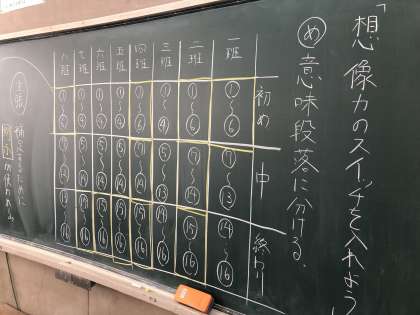 「想像力のスイッチを入れよう
め 意味段落に分ける。
初め 中 終わり
一班 ①〜⑥ ⑦〜⑬ ⑭〜⑯
二班 ①〜⑥ ⑦〜⑭ ⑮〜⑯
三班 ①〜 〜⑬ 〜⑯
四班 ①〜④ ⑤〜⑭ ⑮〜⑯
五班 ①〜④ ⑤〜⑭ ⑮〜⑯
六班 ①〜④ ⑤〜⑭ ⑮〜⑯
七班 ①〜④ ⑤〜⑭ ⑮〜⑯
八班 ①〜④ 〜⑭ 〜⑯
主張
補足するために
が使われる